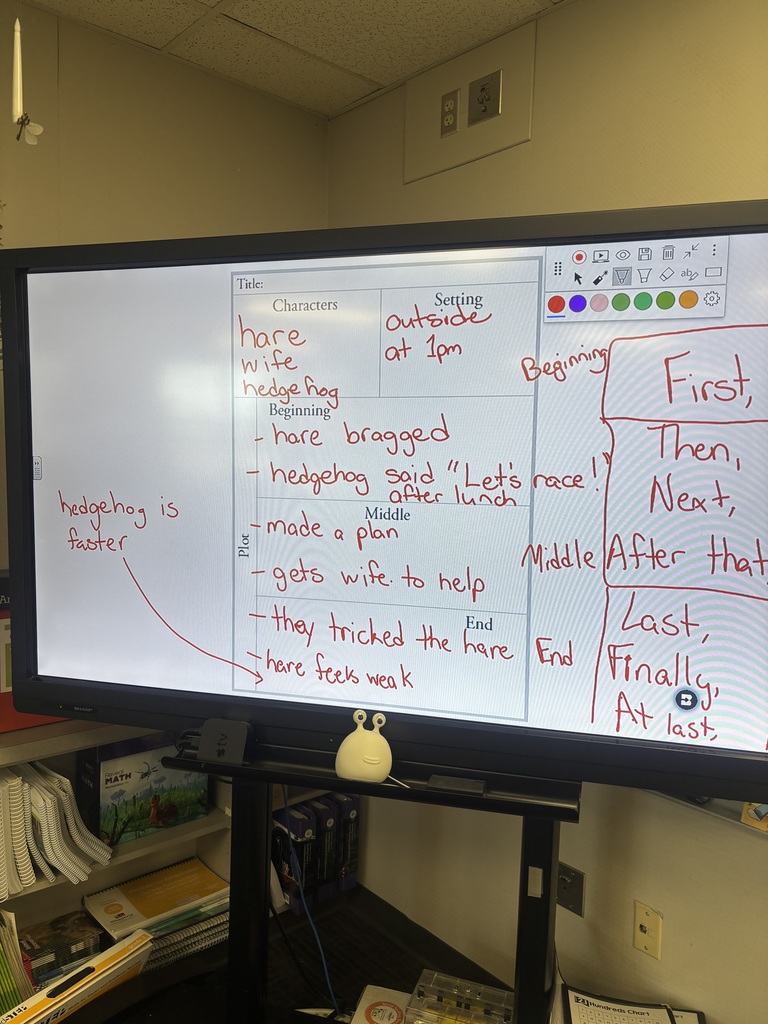 Title:
Characters
hare
wife
hedgehog
Setting
outside
at 1pm
Plot
Beginning
- hare bragged
- hedgehog said "Let's race!"
after lunch
Middle
- made a plan
- gets wife to help
End
- they tricked the hare
- hare feels weak
hedgehog is
faster
Beginning
First,
Middle
Then,
Next,
After that,
End
Last,
Finally,
At last,
ab
SHARP
MATH
Hundreds Chart